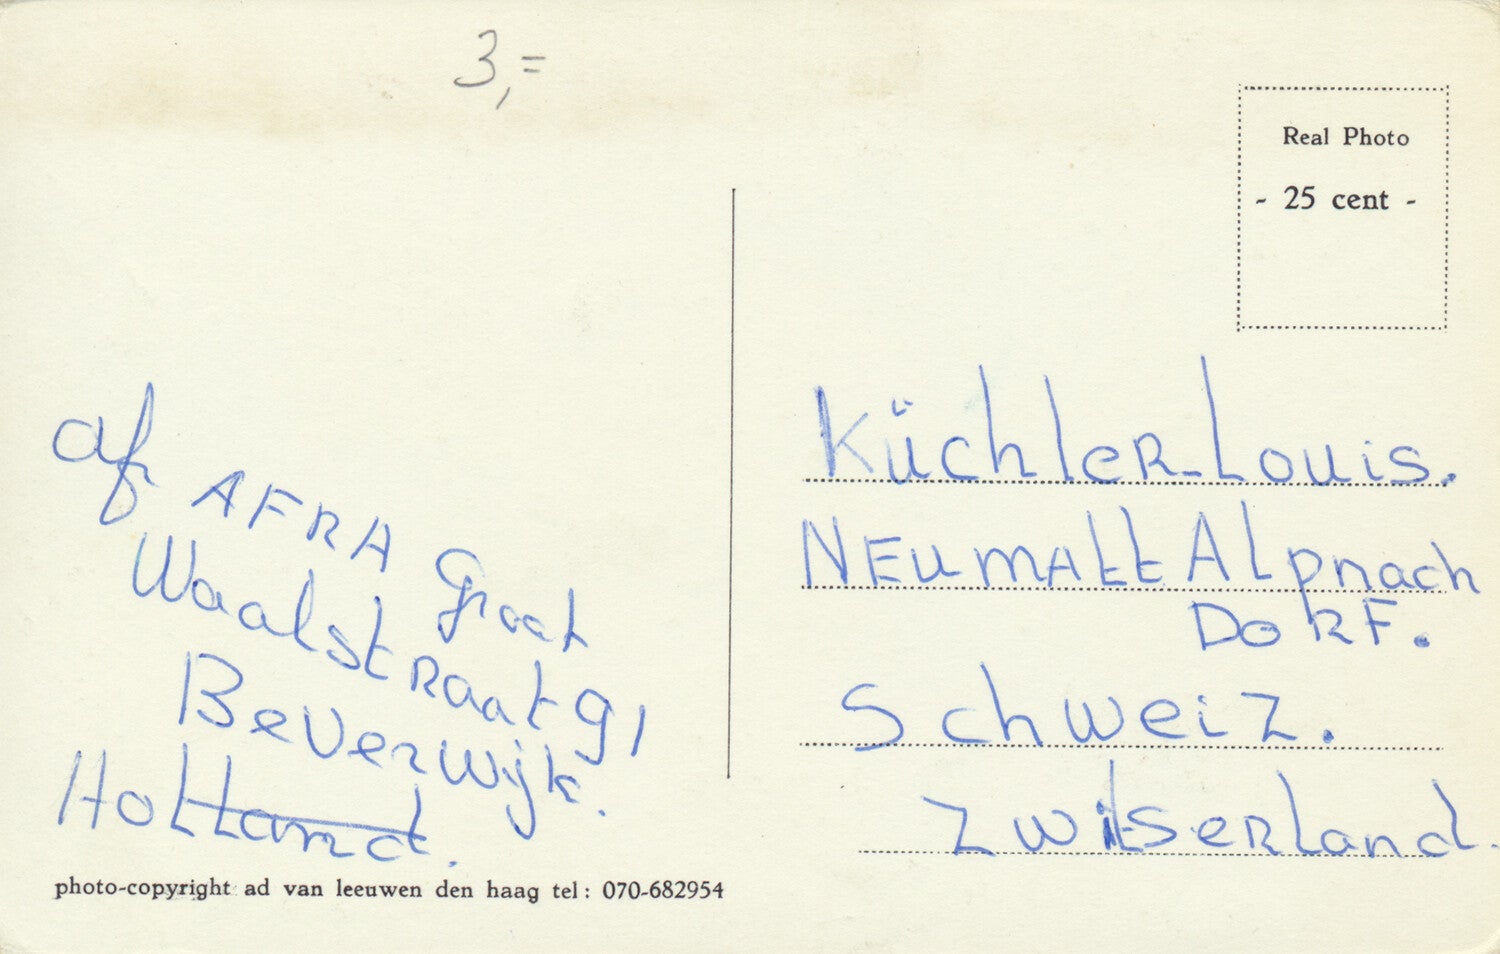 3,=
Real Photo
- 25 cent -
af AFRA Groot
Waalstraat 91
Beverwijk.
Holland.
photo-copyright ad van leeuwen den haag tel: 070-682954
Küchler-Louis.
NEUMATT Alpnach
DORF.
Schweiz.
Zwitserland.